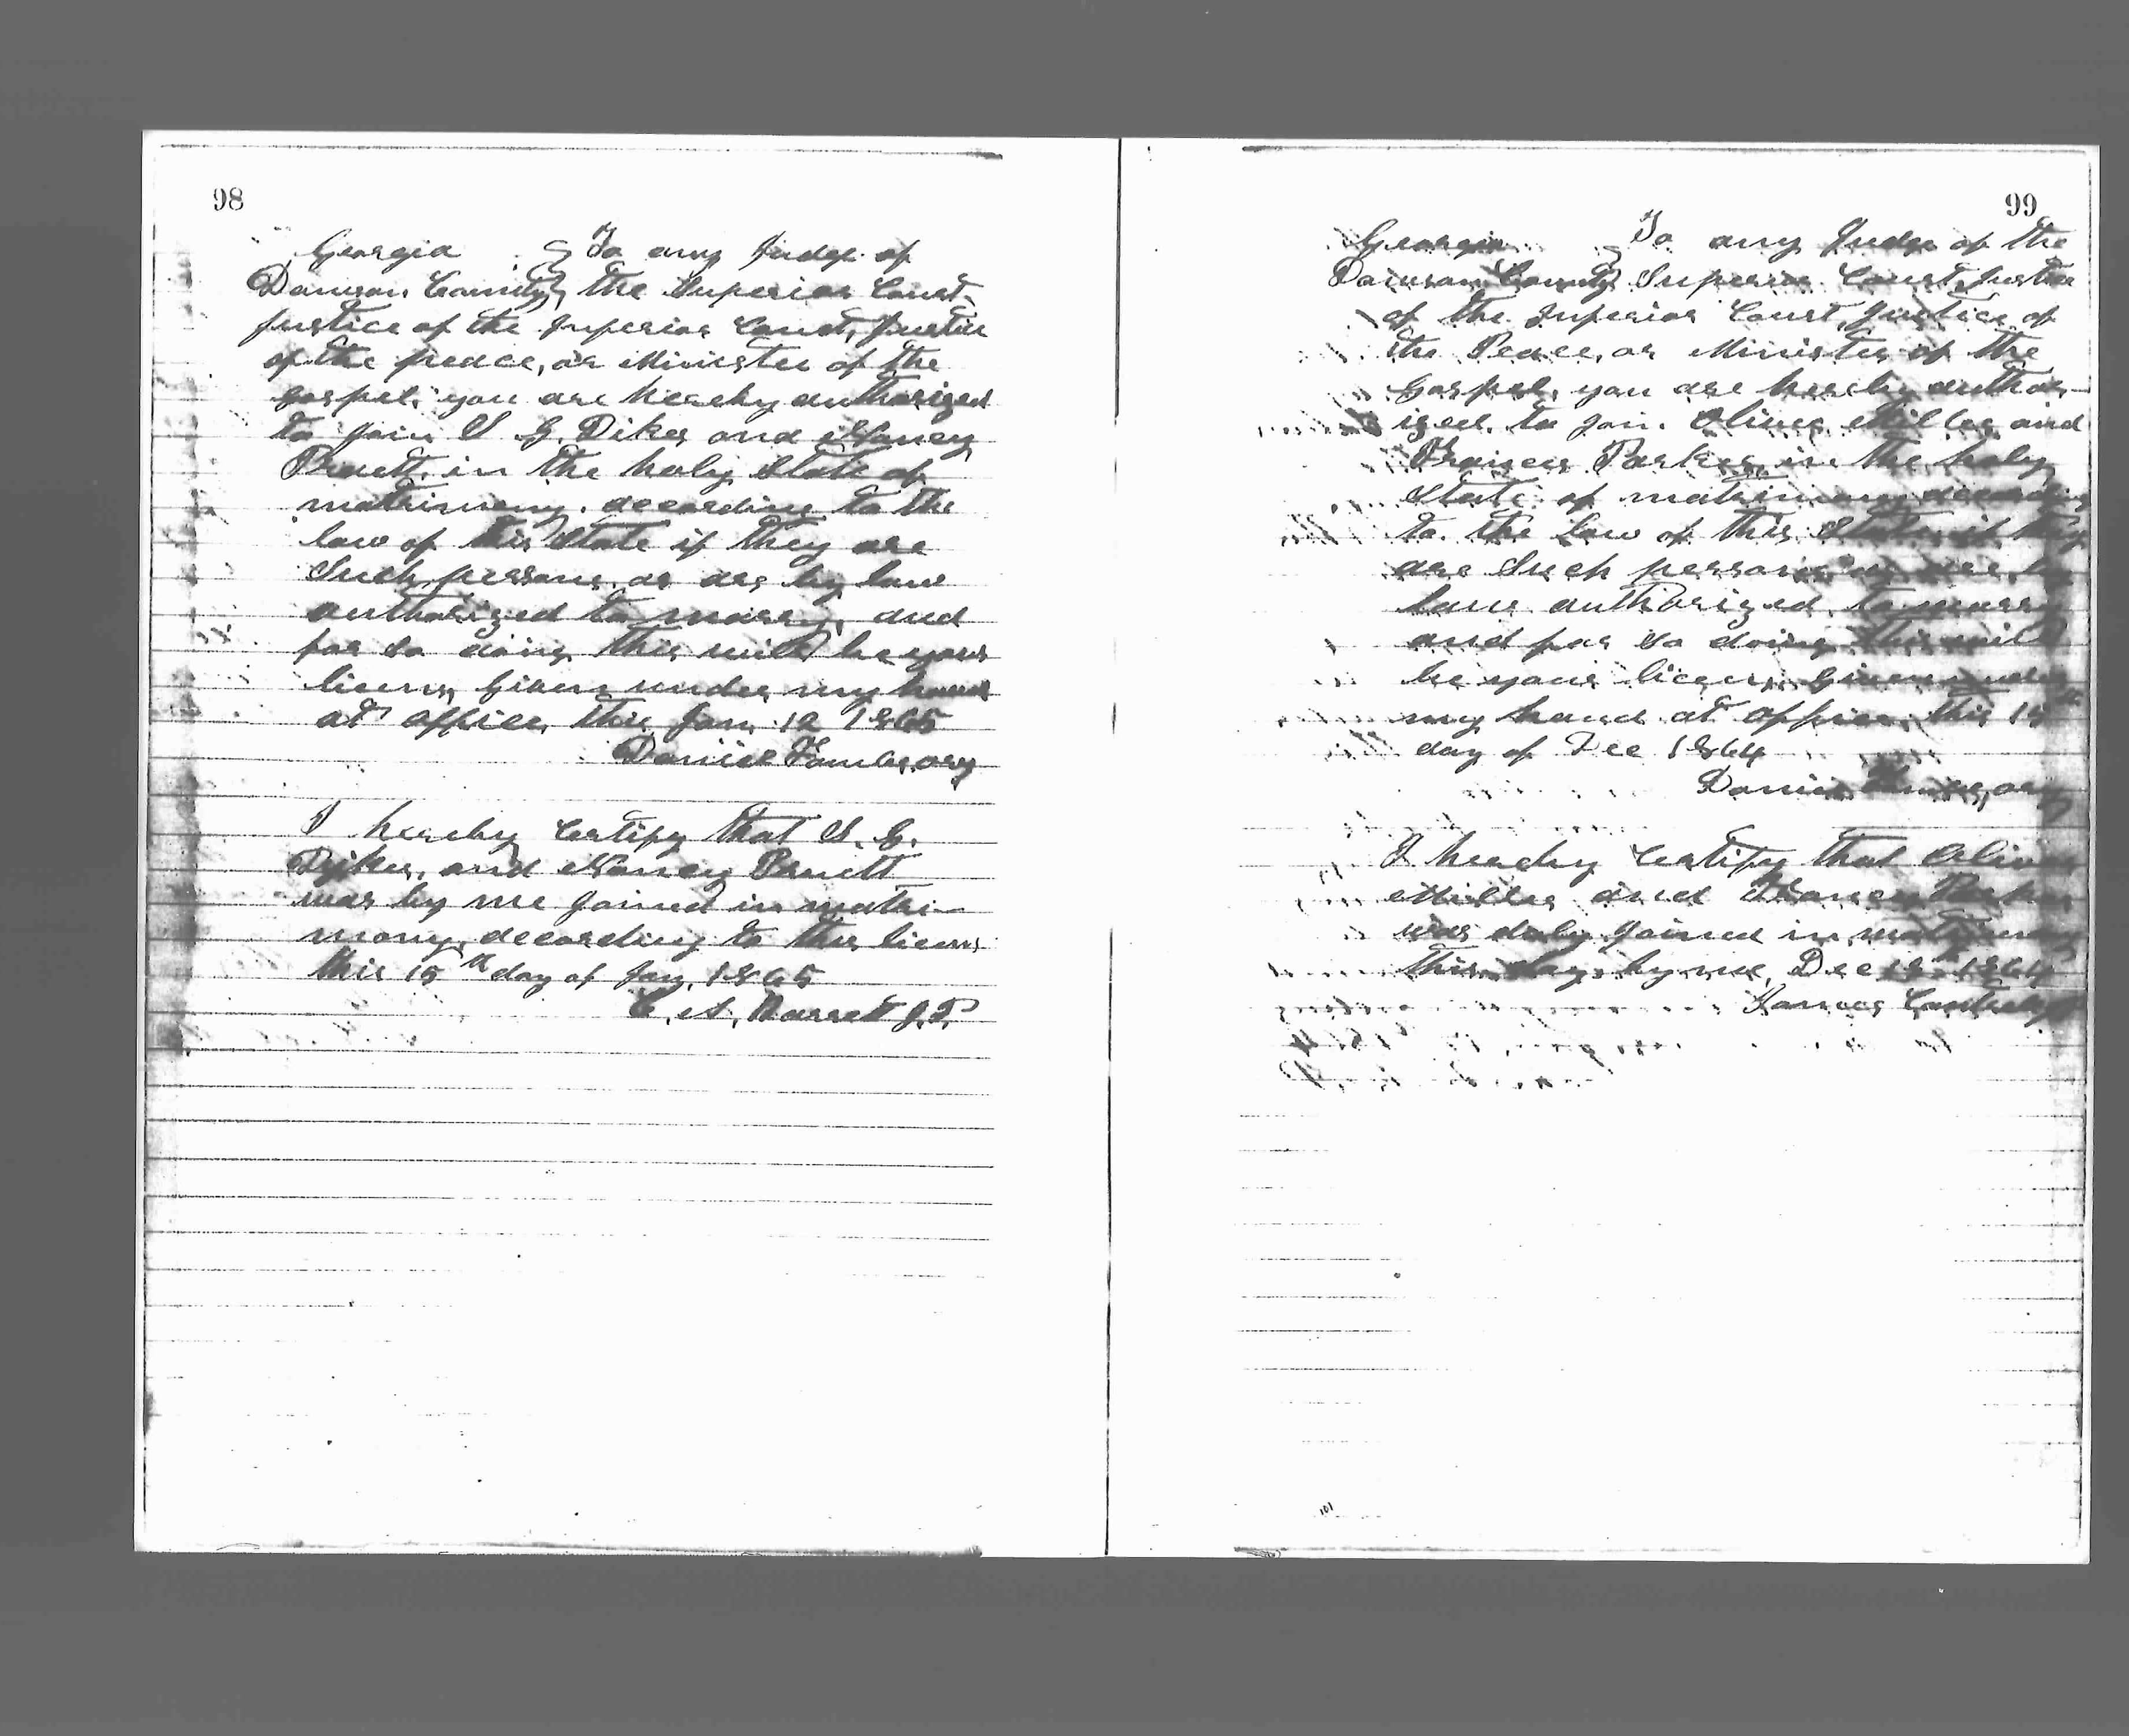 98
Georgia } To any Judge of
Dawson County } the Superior Court
Justice of the Inferior Court, Justice
of the peace, or Minister of the
Gospel, you are hereby authorized
to join S G Dikes and Nancy
Pruett in the holy State of
matrimony. according to the
law of this State if they are
Such persons, as are by law
authorized to marry, and
for So doing this will be your
licens, Given under my hand
at office this Jan 12 1865
Daniel Fowler, ory
I hereby Certify that S. G.
Dykes, and Nancy Pruett
was by me joined in matri-
mony, according to this licens
this 15th day of Jan, 1865
C, A, Barrett J.P.
99
Georgia } To any Judge of the
Dawson County } Superior Court, Justice
of the Inferior Court, Justice of
the Peace, or Minister of the
Gospel, you are hereby author-
ized, to join. Oliver Miller and
Parker in the holy
State of matrimony according
to the Law of this State if they
are Such persons as are by
law authorized to marry
and for So doing this will
be your licens, Given under
my hand at office, this 15th
day of Dec 1864
Daniel ory
I hereby Certify that Oliver
Miller and
was duly joined in matrimony
this day by me, Dec 1864
101